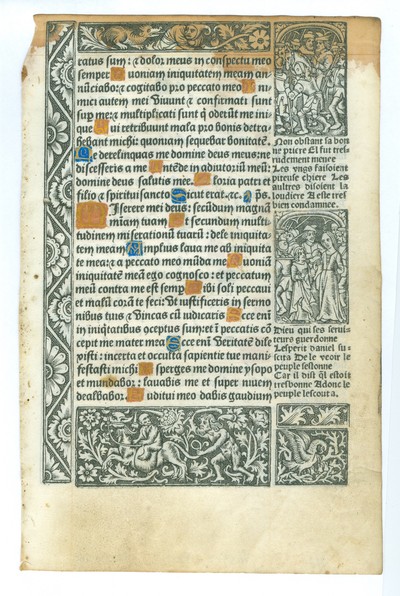 ratus sum: & dolor meus in conspectu meo
semper Quoniam iniquitatem meam an
nūciabo: & cogitabo pro peccato meo
mici autem mei Viuunt & confirmati sunt
sup me: & multiplicati sunt q̄ oderūt me ini
que Qui retribuunt mala pro bonis detra
hebant michi: quoniam sequebar bonitatē.
Ne derelinquas me domine deus meus: ne
discesseris a me Intēde in adiutoriū meū:
domine deus salutis mee. Gloria patri et
filio & spiritui sancto Sicut erat. &c. ps.
Miserere mei deus: secūdum magnā
miam tuam Et secundum mult
tudinem miserationū tuarū: dele iniquita
tem meam Amplius laua me ab iniquita
te mea: & a peccato meo mūda me Quoniā
iniquitatē meā ego cognosco: et peccatum
meū contra me est semp Tibi soli peccaui
et malū corā te feci: Vt iustificeris in sermo
nibus tuis & Vincas cū iudicaris Ecce eni
in iniqtatibus cōceptus sum: et ī peccatis cō
cepit me mater mea Ecce enī Veritatē dile
xisti: incerta et occulta sapientie tue mani
festasti michi Asperges me domine ysopo
et mundabor: lauabis me et super niuem
dealbabor. Auditui meo dabis gaudium
Non obstant sa bon
ne priere El fut tres
rudement menee
Les vngs faisoient
piteuse chiere Les
aultres disoient la
loudiere A elle tres
bien condamnee.
Dieu qui ses serui
teurs guerdonne
Lesperit daniel su
scita De le veoir le
peuple sestonne
Car il dist q̄l estoit
tresdonne Adonc le
peuple lescouta.